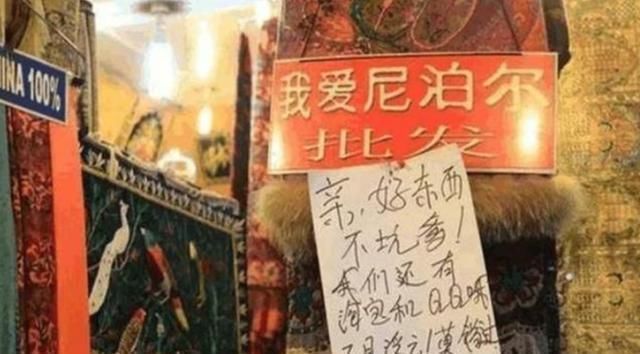 INA 100%
我爱尼泊尔
批发
亲,好东西
不坑爹!
我们还有
淘宝和QQ哦